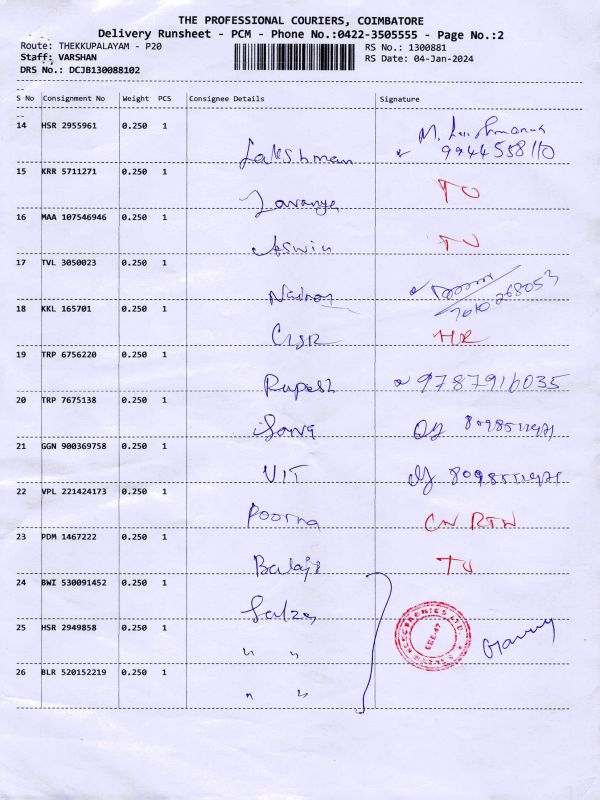 THE PROFESSIONAL COURIERS, COIMBATORE
Delivery Runsheet - PCM - Phone No.:0422-3505555 - Page No.:2
Route: THEKKUPALAYAM - P20 RS No.: 1300881
Staff: VARSHAN RS Date: 04-Jan-2024
DRS No.: DCJB130088102
S No Consignment No Weight PCS Consignee Details Signature
14 HSR 2955961 0.250 1 Lakshman 9944558110
15 KRR 5711271 0.250 1 Lavanya TO
16 MAA 107546946 0.250 1 Aswin TO
17 TVL 3050023 0.250 1
18 KKL 165701 0.250 1
19 TRP 6756220 0.250 1 Rupesh 9787916035
20 TRP 7675138 0.250 1
21 GGN 900369758 0.250 1 VIT
22 VPL 221424173 0.250 1 Poorna CN RTN
23 PDM 1467222 0.250 1 Balaji TO
24 BWI 530091452 0.250 1
25 HSR 2949858 0.250 1 " "
26 BLR 520152219 0.250 1 " "